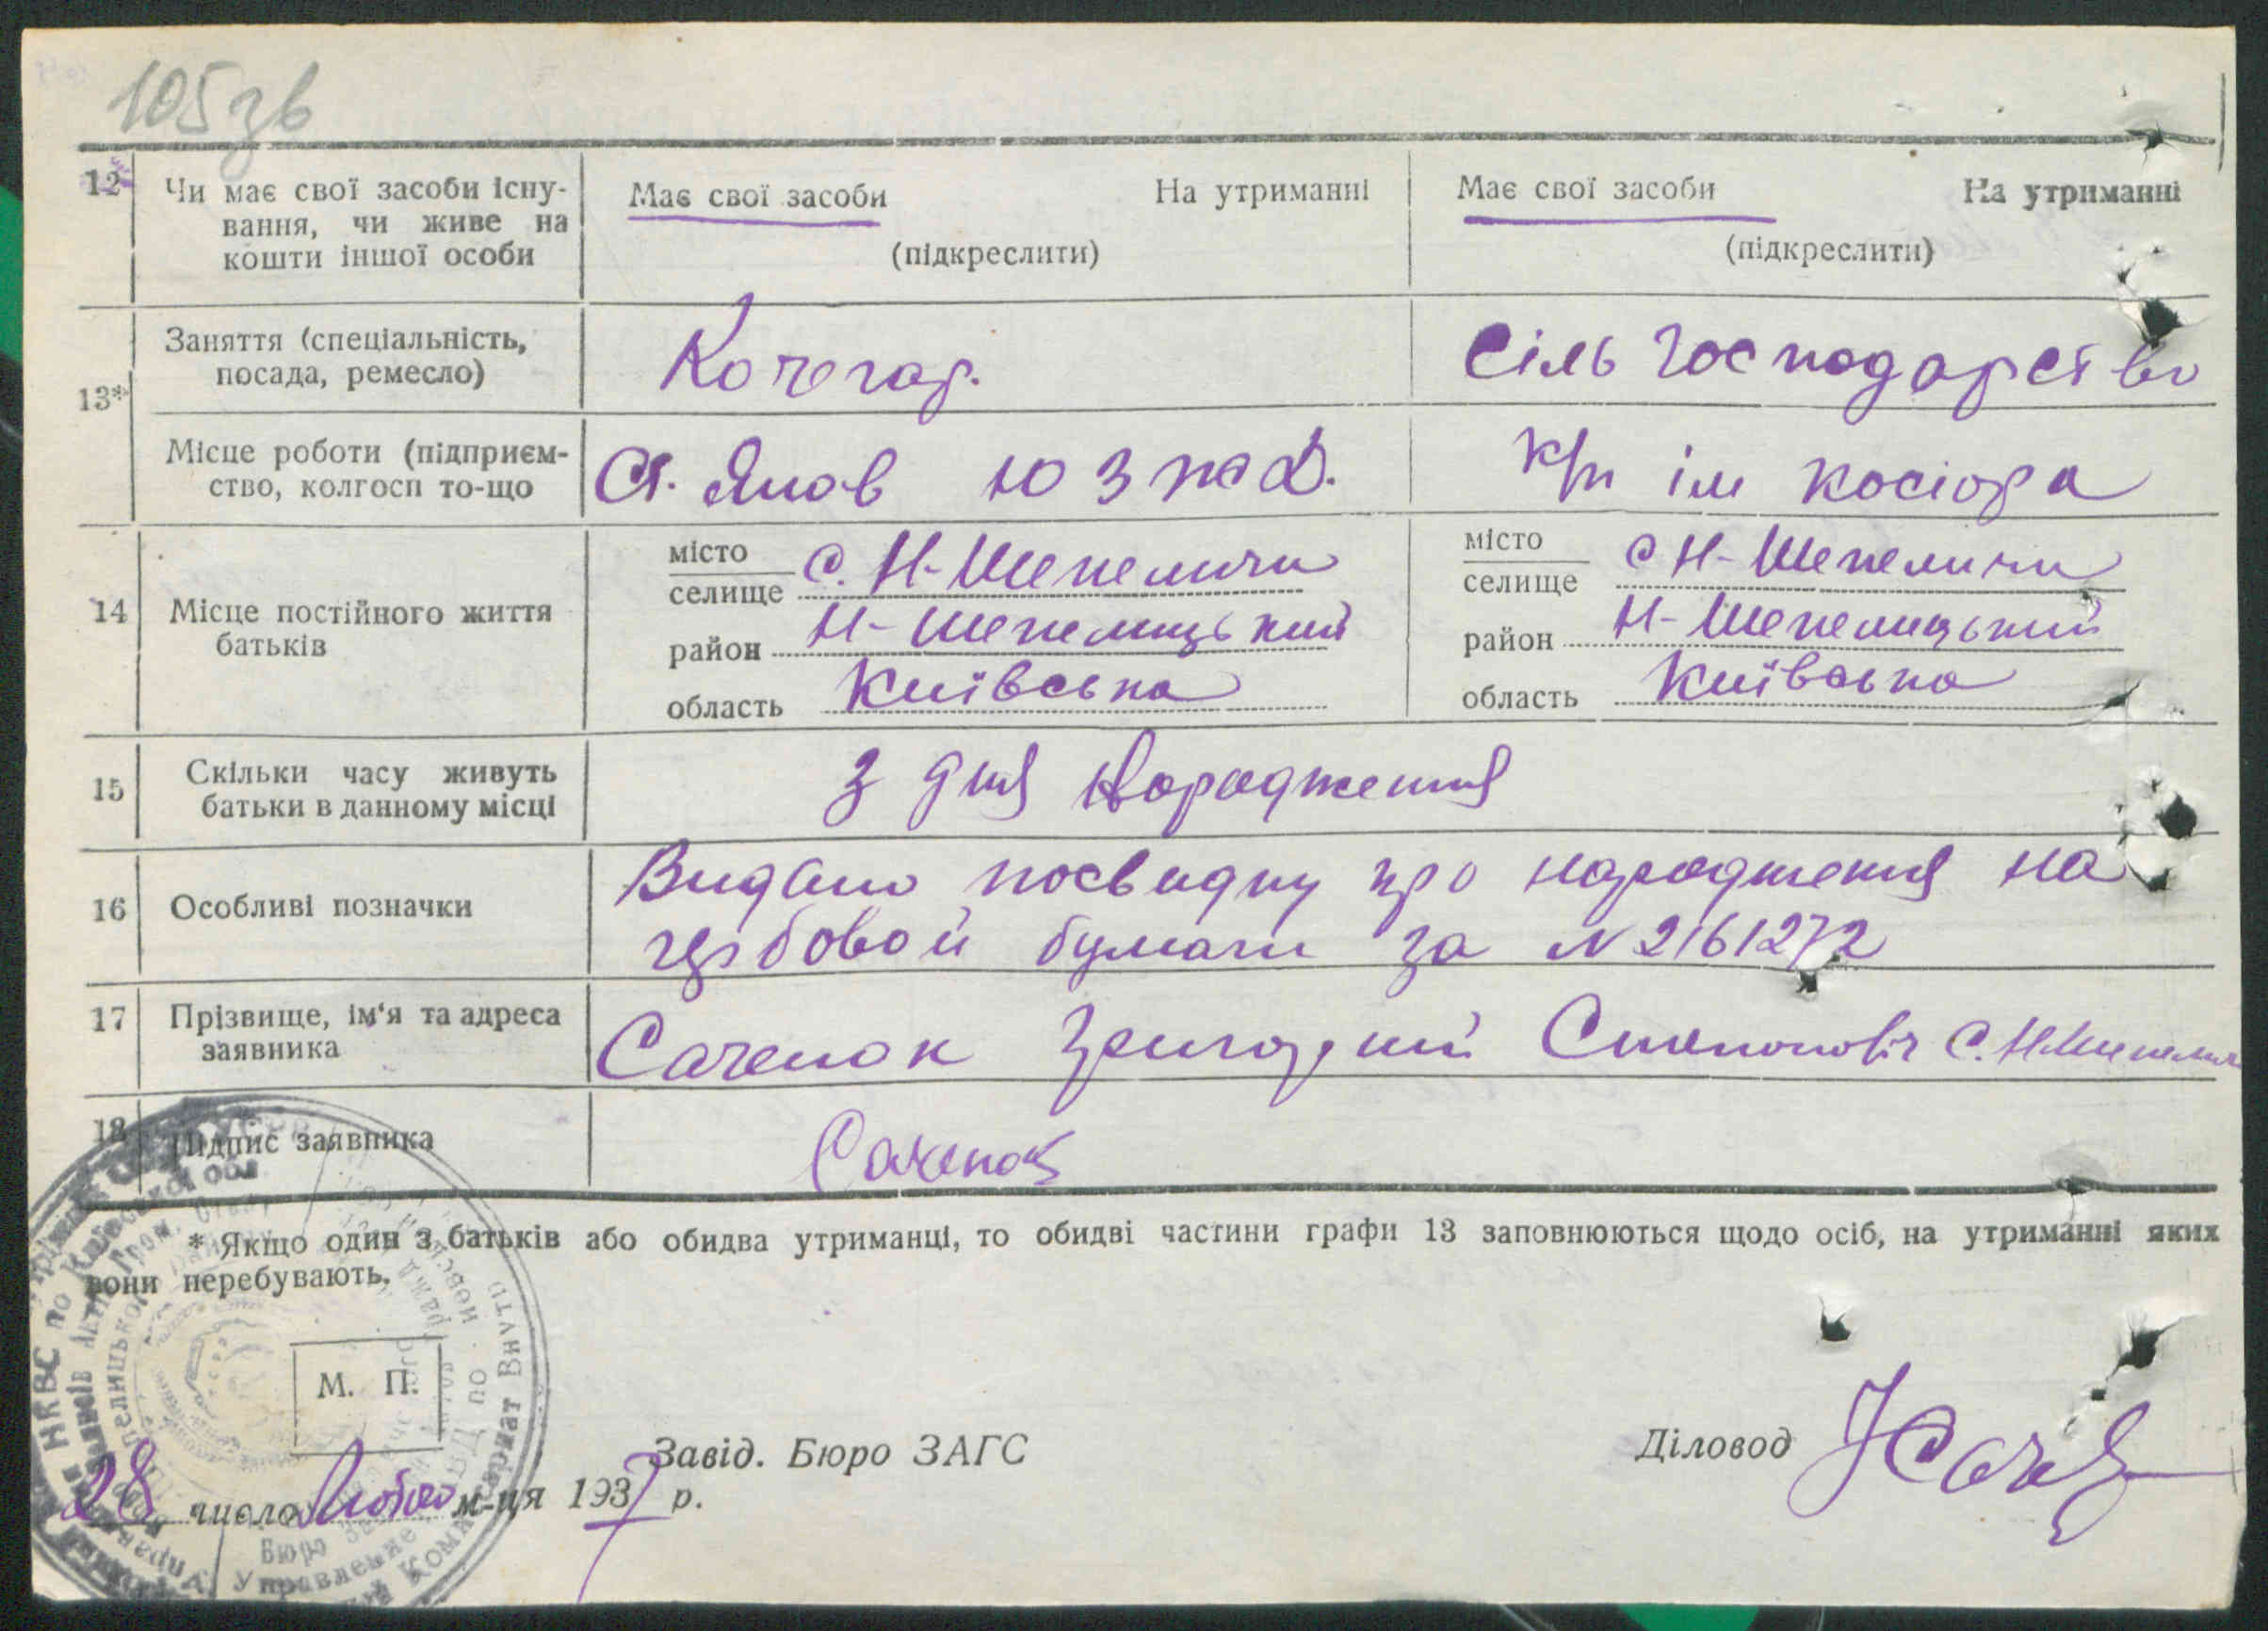 105 зв
12* Чи має свої засоби існу- Має свої засоби На утриманні Має свої засоби На утриманні
вання, чи живе на
кошти іншої особи (підкреслити) (підкреслити)
Заняття (спеціальність, Кочегар. Сіль Господарство
посада, ремесло)
13*
Місце роботи (підприєм- Ст. Янов ЮЗ ж Д. к/г ім Косіора
ство, колгосп то-що
місто с. Н-Шепеличи місто с Н-Шепеличи
селище селище
14 Місце постійного життя район Н-Шепелицький район Н-Шепелицький
батьків
область Київська область Київська
15 Скільки часу живуть З дня народження
батьки в данному місці
16 Особливі позначки Видано посвидку про народження на
гербовой бумаги за N 2161272
17 Прізвище, ім'я та адреса Саченок Григорий Степанович с. Н-Шепеличи
заявника
18 Підпис заявника Саченок
* Якщо один з батьків або обидва утриманці, то обидві частини графи 13 заповнюються щодо осіб, на утриманні яких
вони перебувають.
М. П.
Завід. Бюро ЗАГС Діловод
28 число Лютого м-ця 1937 р.